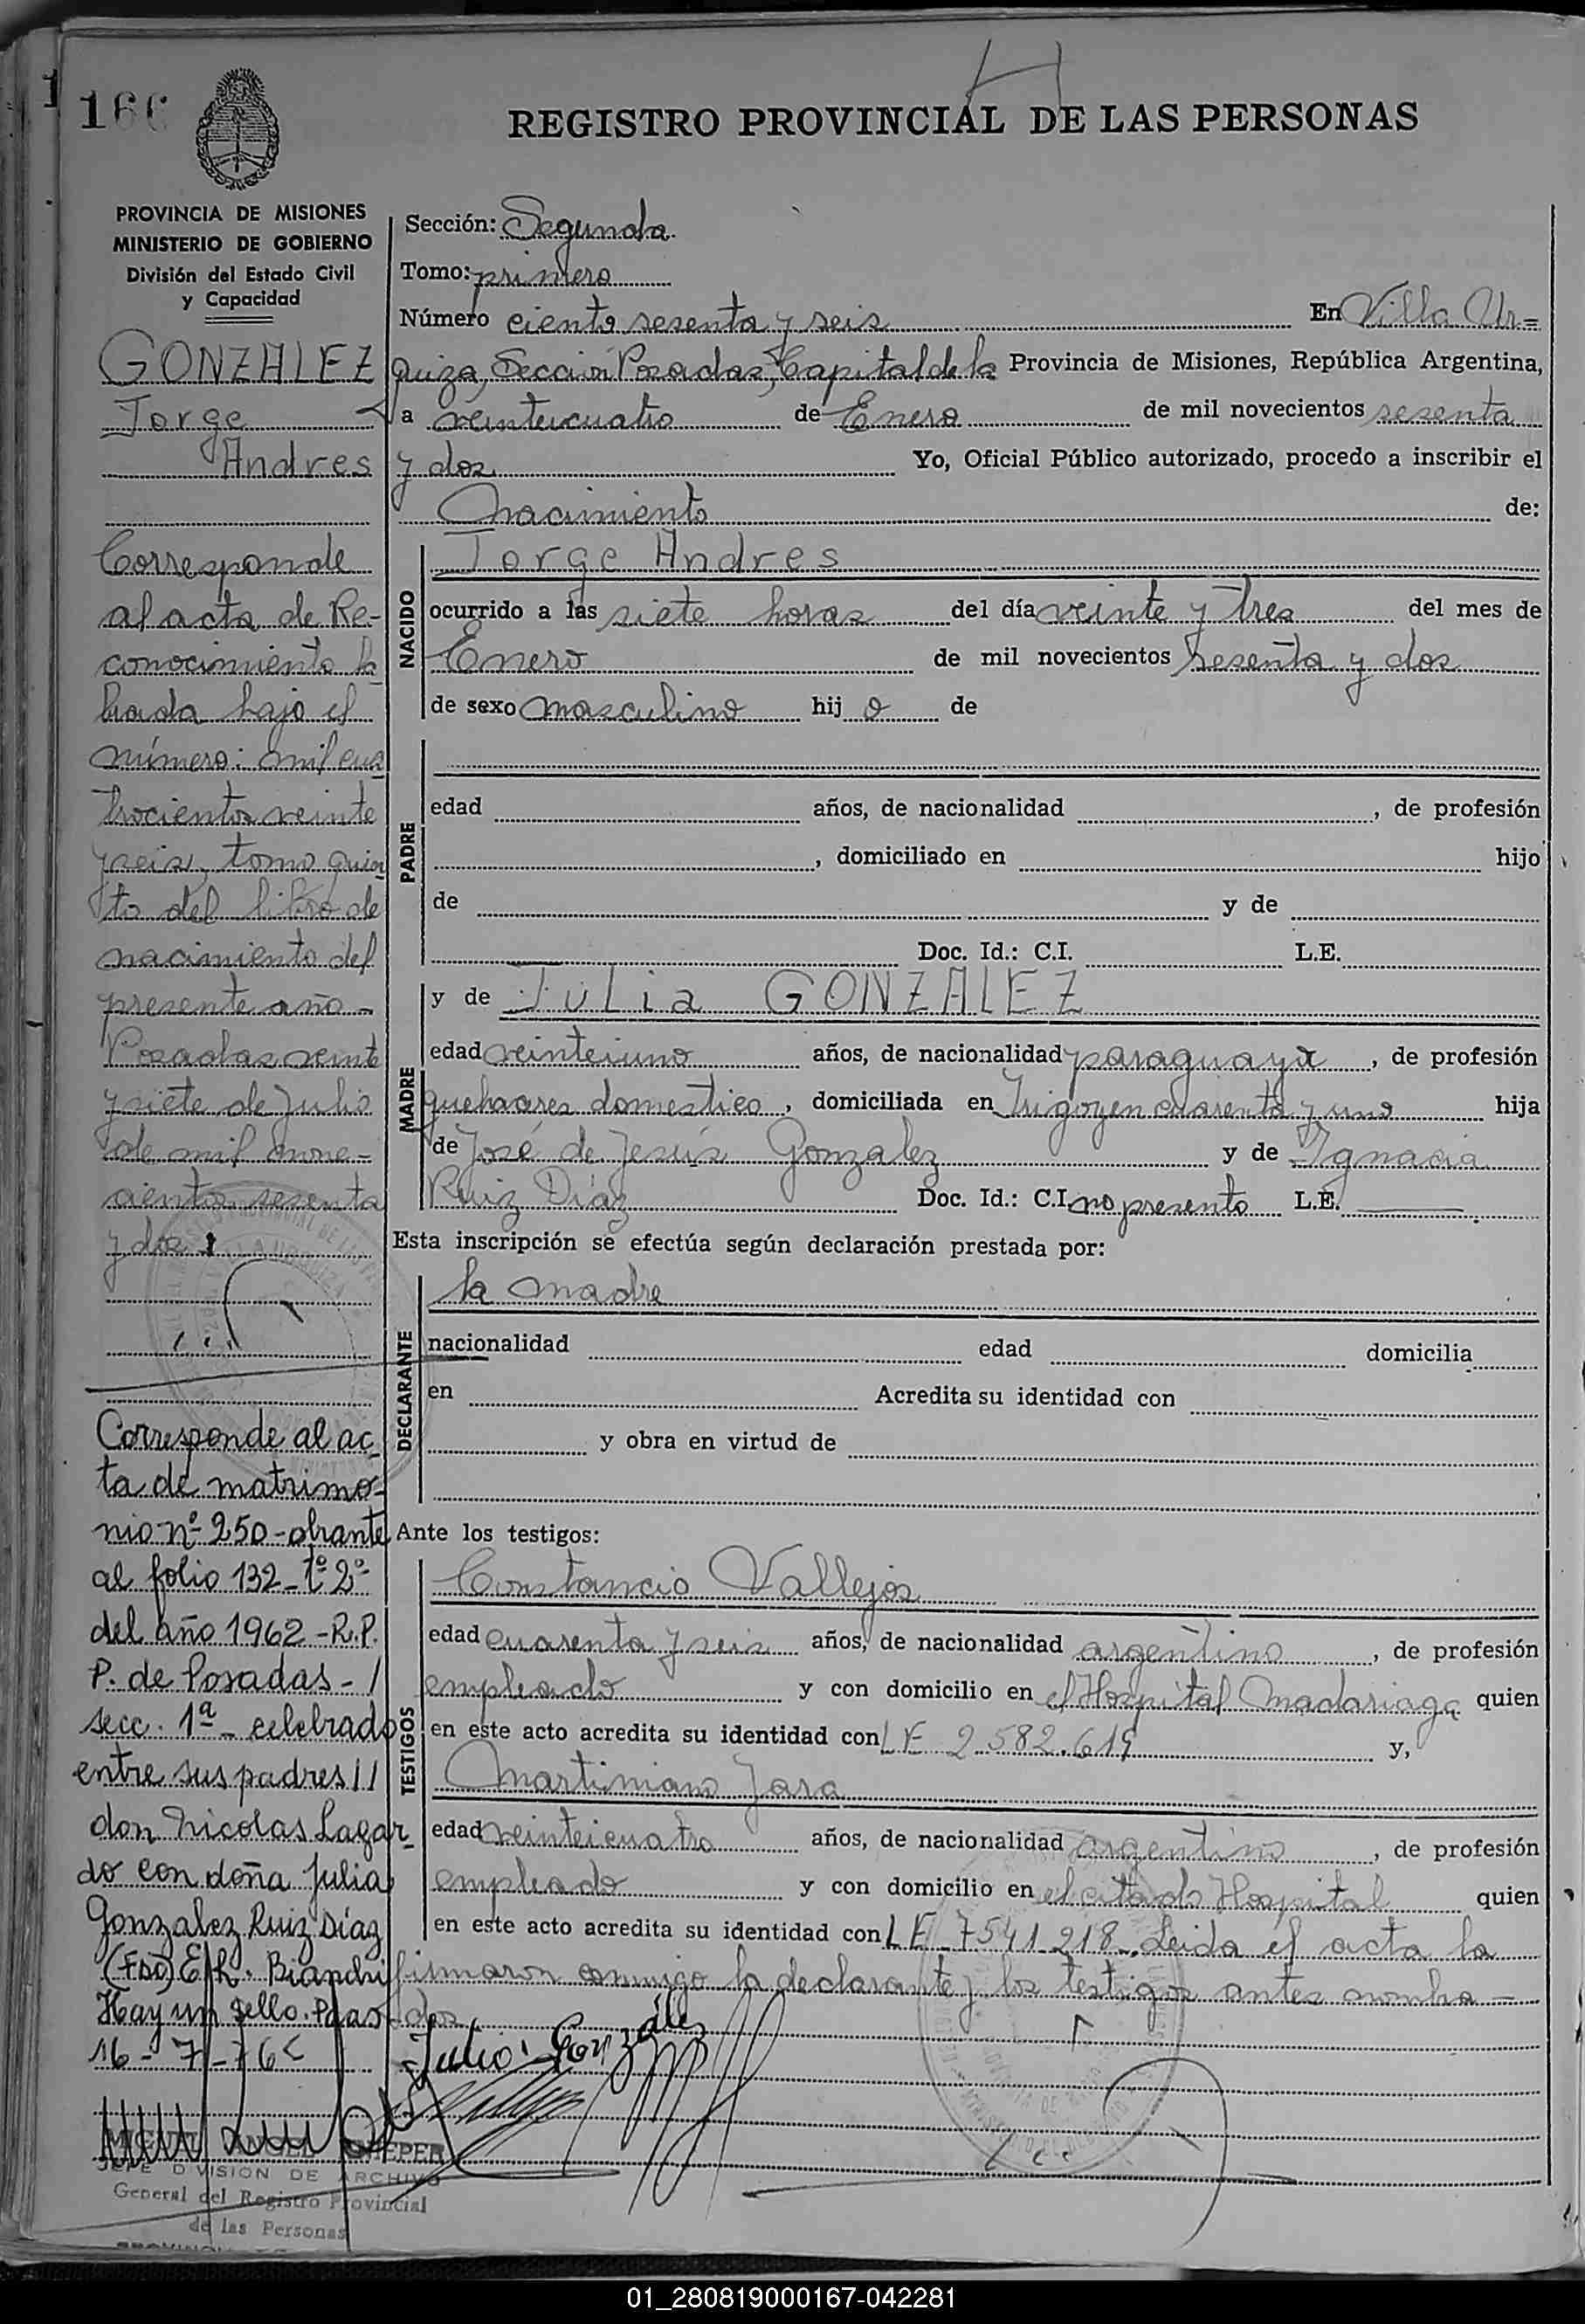 166
REGISTRO PROVINCIAL DE LAS PERSONAS
PROVINCIA DE MISIONES
MINISTERIO DE GOBIERNO
División del Estado Civil
y Capacidad
GONZALEZ
Jorge
Andres
Corresponde
al acta de Re-
conocimiento la
brada bajo el
número: mil cua
trocientos veinte
y seis, tomo quin
to del libro de
nacimiento del
presente año -
Posadas veinte
y siete de Julio
de mil nove-
cientos sesenta
y dos
Corresponde al ac
ta de matrimo-
nio nº 250 - obrante
al folio 132 - tº 2º
del año 1962 - R.P.
P. de Posadas - /
secc. 1ª - celebrado
entre sus padres //
don Nicolas Lagar
do con doña Julia
Gonzalez Ruiz Díaz
(Fdo) E. R. Bianchi
Hay un sello. Pdas
16 - 7 - 76
JEFE DIVISION DE ARCHIVO
General del Registro Provincial
de las Personas
Sección: Segunda
Tomo: primero
Número ciento sesenta y seis En Villa Ur=
quiza, Sección Posadas, Capital de la Provincia de Misiones, República Argentina,
a veinteicuatro de Enero de mil novecientos sesenta
y dos Yo, Oficial Público autorizado, procedo a inscribir el
nacimiento de:
NACIDO
Jorge Andres
ocurrido a las siete horas del día veinte y tres del mes de
Enero de mil novecientos sesenta y dos
de sexo masculino hij o de
PADRE
edad años, de nacionalidad , de profesión
, domiciliado en hijo
de y de
Doc. Id.: C.I. L.E.
MADRE
y de Julia GONZALEZ
edad veinteiuno años, de nacionalidad paraguaya , de profesión
quehaceres domestico , domiciliada en Irigoyen cuarenta y uno hija
de José de Jesús Gonzalez y de Ignacia
Ruiz Díaz Doc. Id.: C.I. no presento L.E.
Esta inscripción se efectúa según declaración prestada por:
DECLARANTE
la madre
nacionalidad edad domicilia
en Acredita su identidad con
y obra en virtud de
Ante los testigos:
TESTIGOS
Constancio Vallejos
edad cuarenta y seis años, de nacionalidad argentino , de profesión
empleado y con domicilio en el Hospital Madariaga quien
en este acto acredita su identidad con LE 2.582.619 y,
Martiniano Jara
edad veinteicuatro años, de nacionalidad argentino , de profesión
empleado y con domicilio en el citado Hospital quien
en este acto acredita su identidad con LE 7541218. Leida el acta la
firmaron conmigo la declarante y los testigos antes nombra-
dos
Julia González
01_280819000167-042281